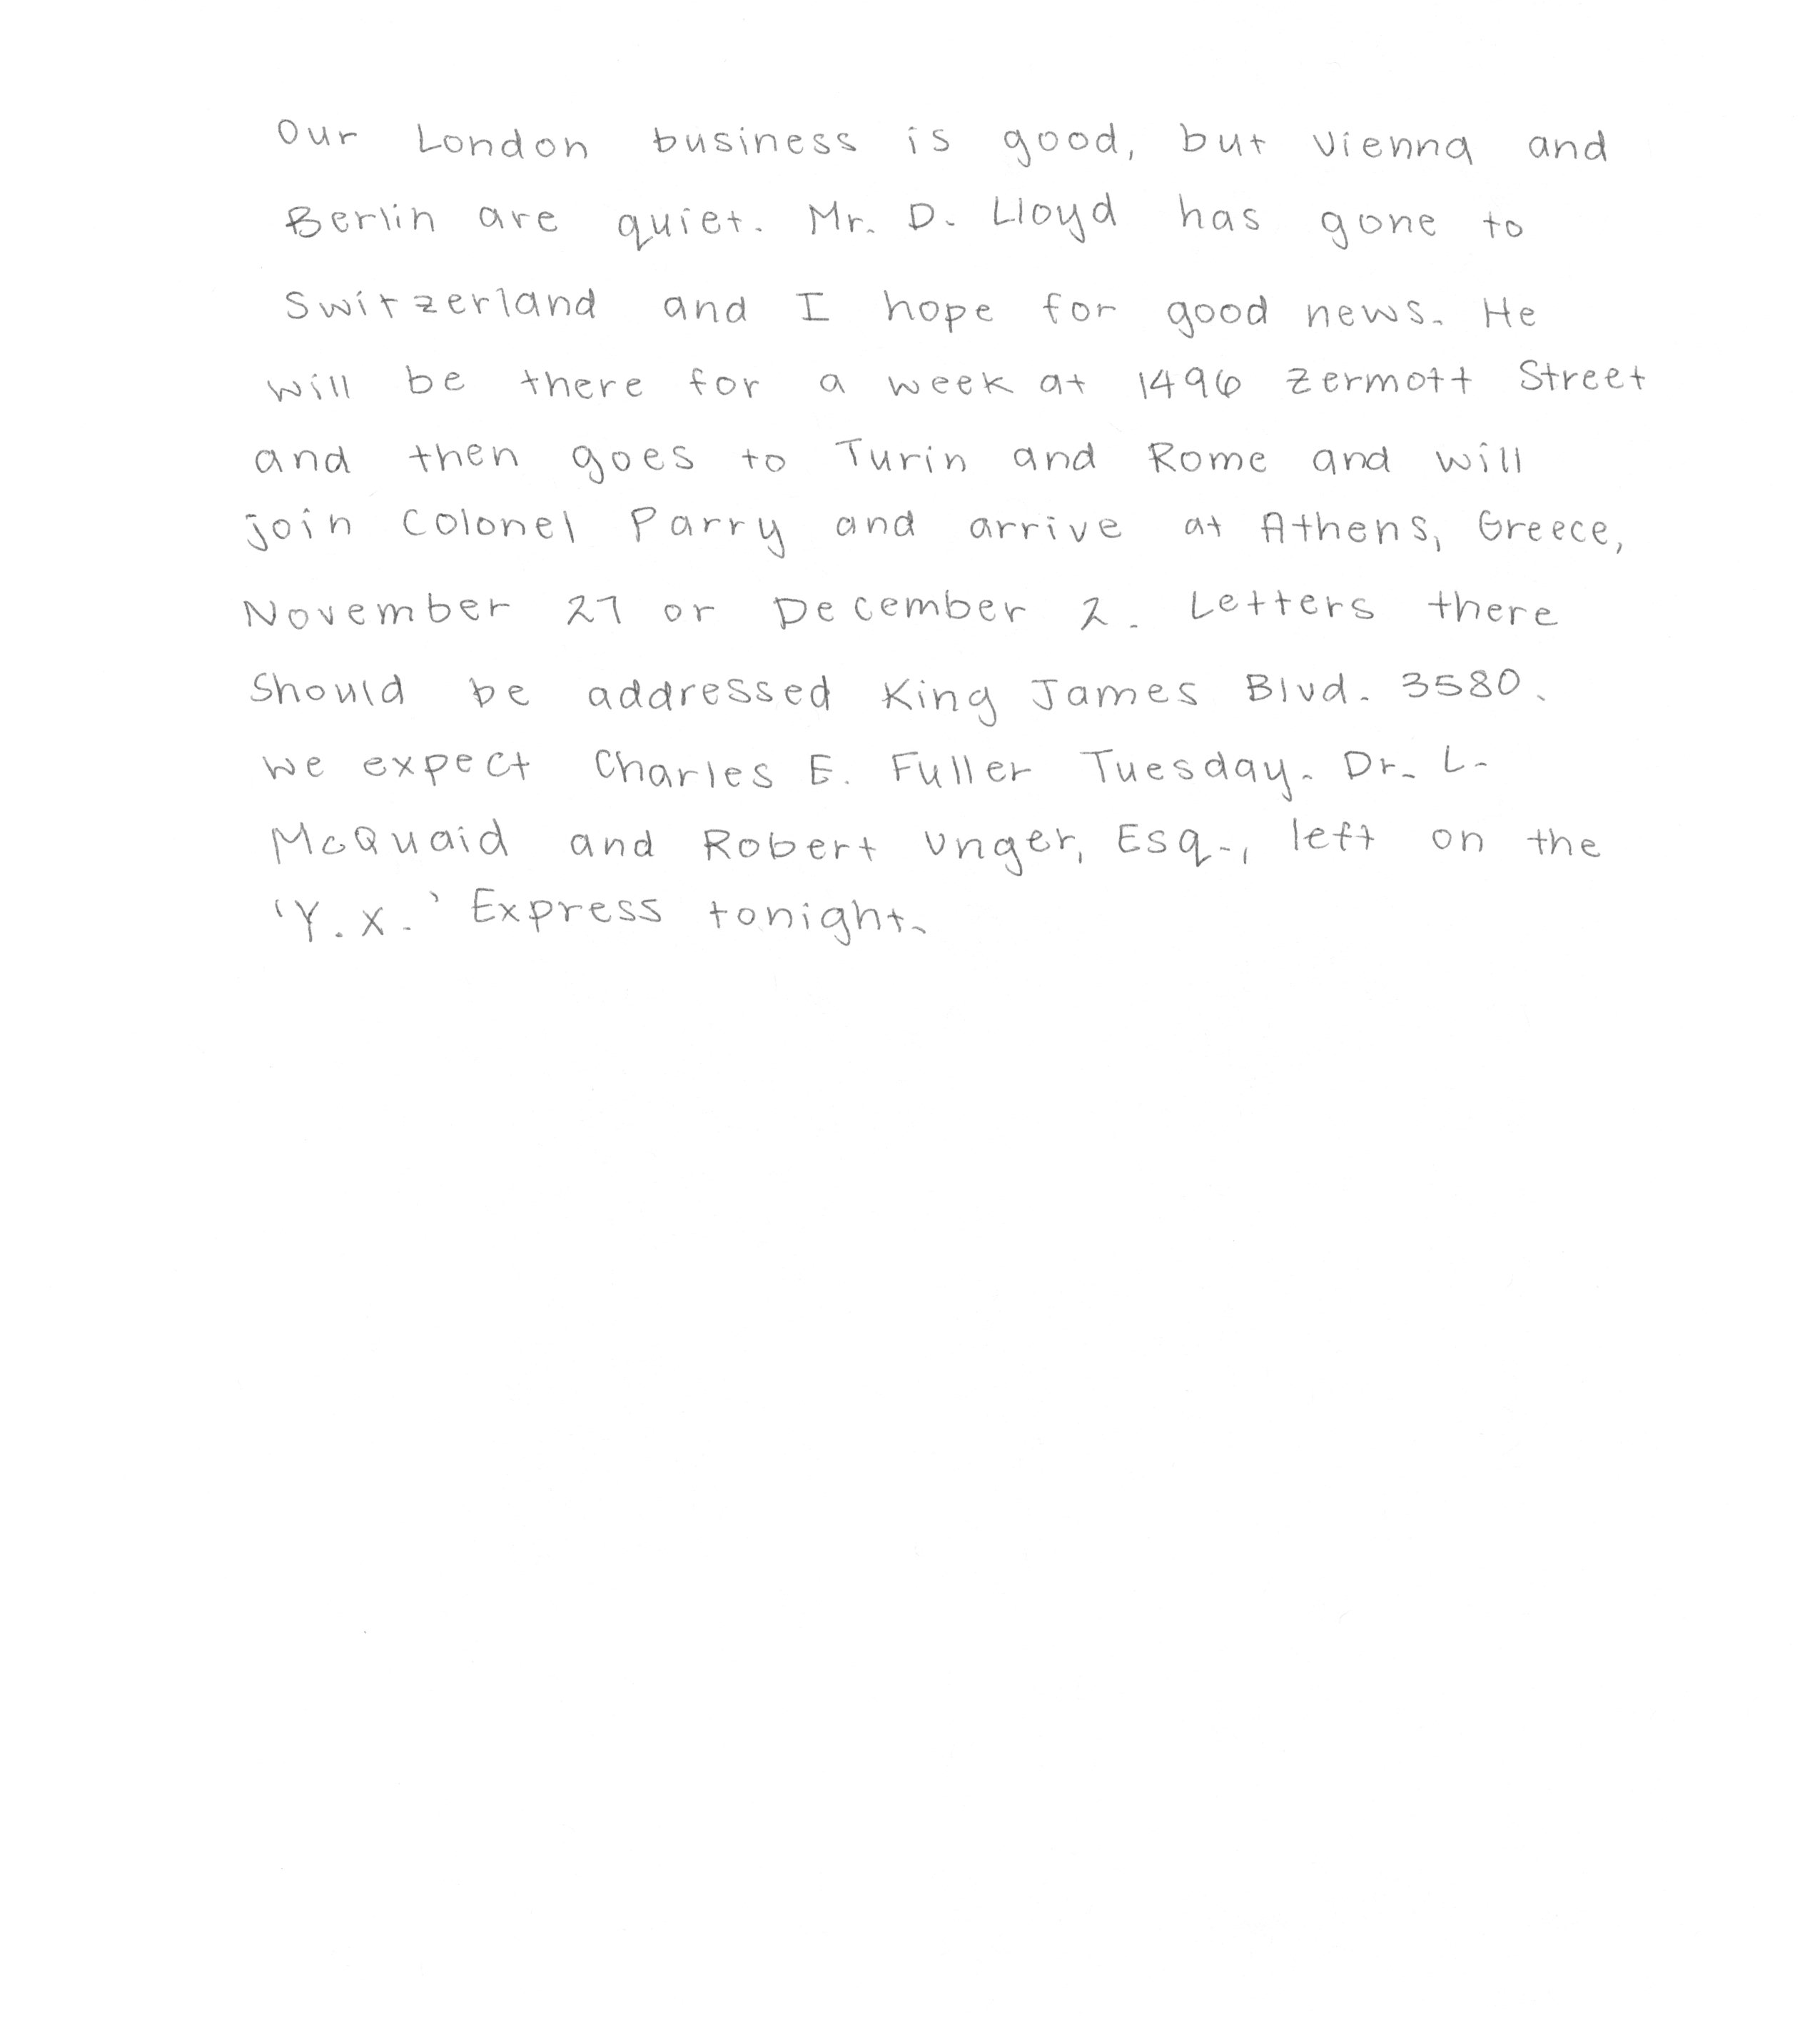 Our London business is good, but Vienna and
Berlin are quiet. Mr. D. Lloyd has gone to
Switzerland and I hope for good news. He
will be there for a week at 1496 Zermott Street
and then goes to Turin and Rome and will
join Colonel Parry and arrive at Athens, Greece,
November 27 or December 2. Letters there
should be addressed King James Blvd. 3580.
We expect Charles E. Fuller Tuesday. Dr. L.
McQuaid and Robert Unger, Esq., left on the
'Y.X.' Express tonight.